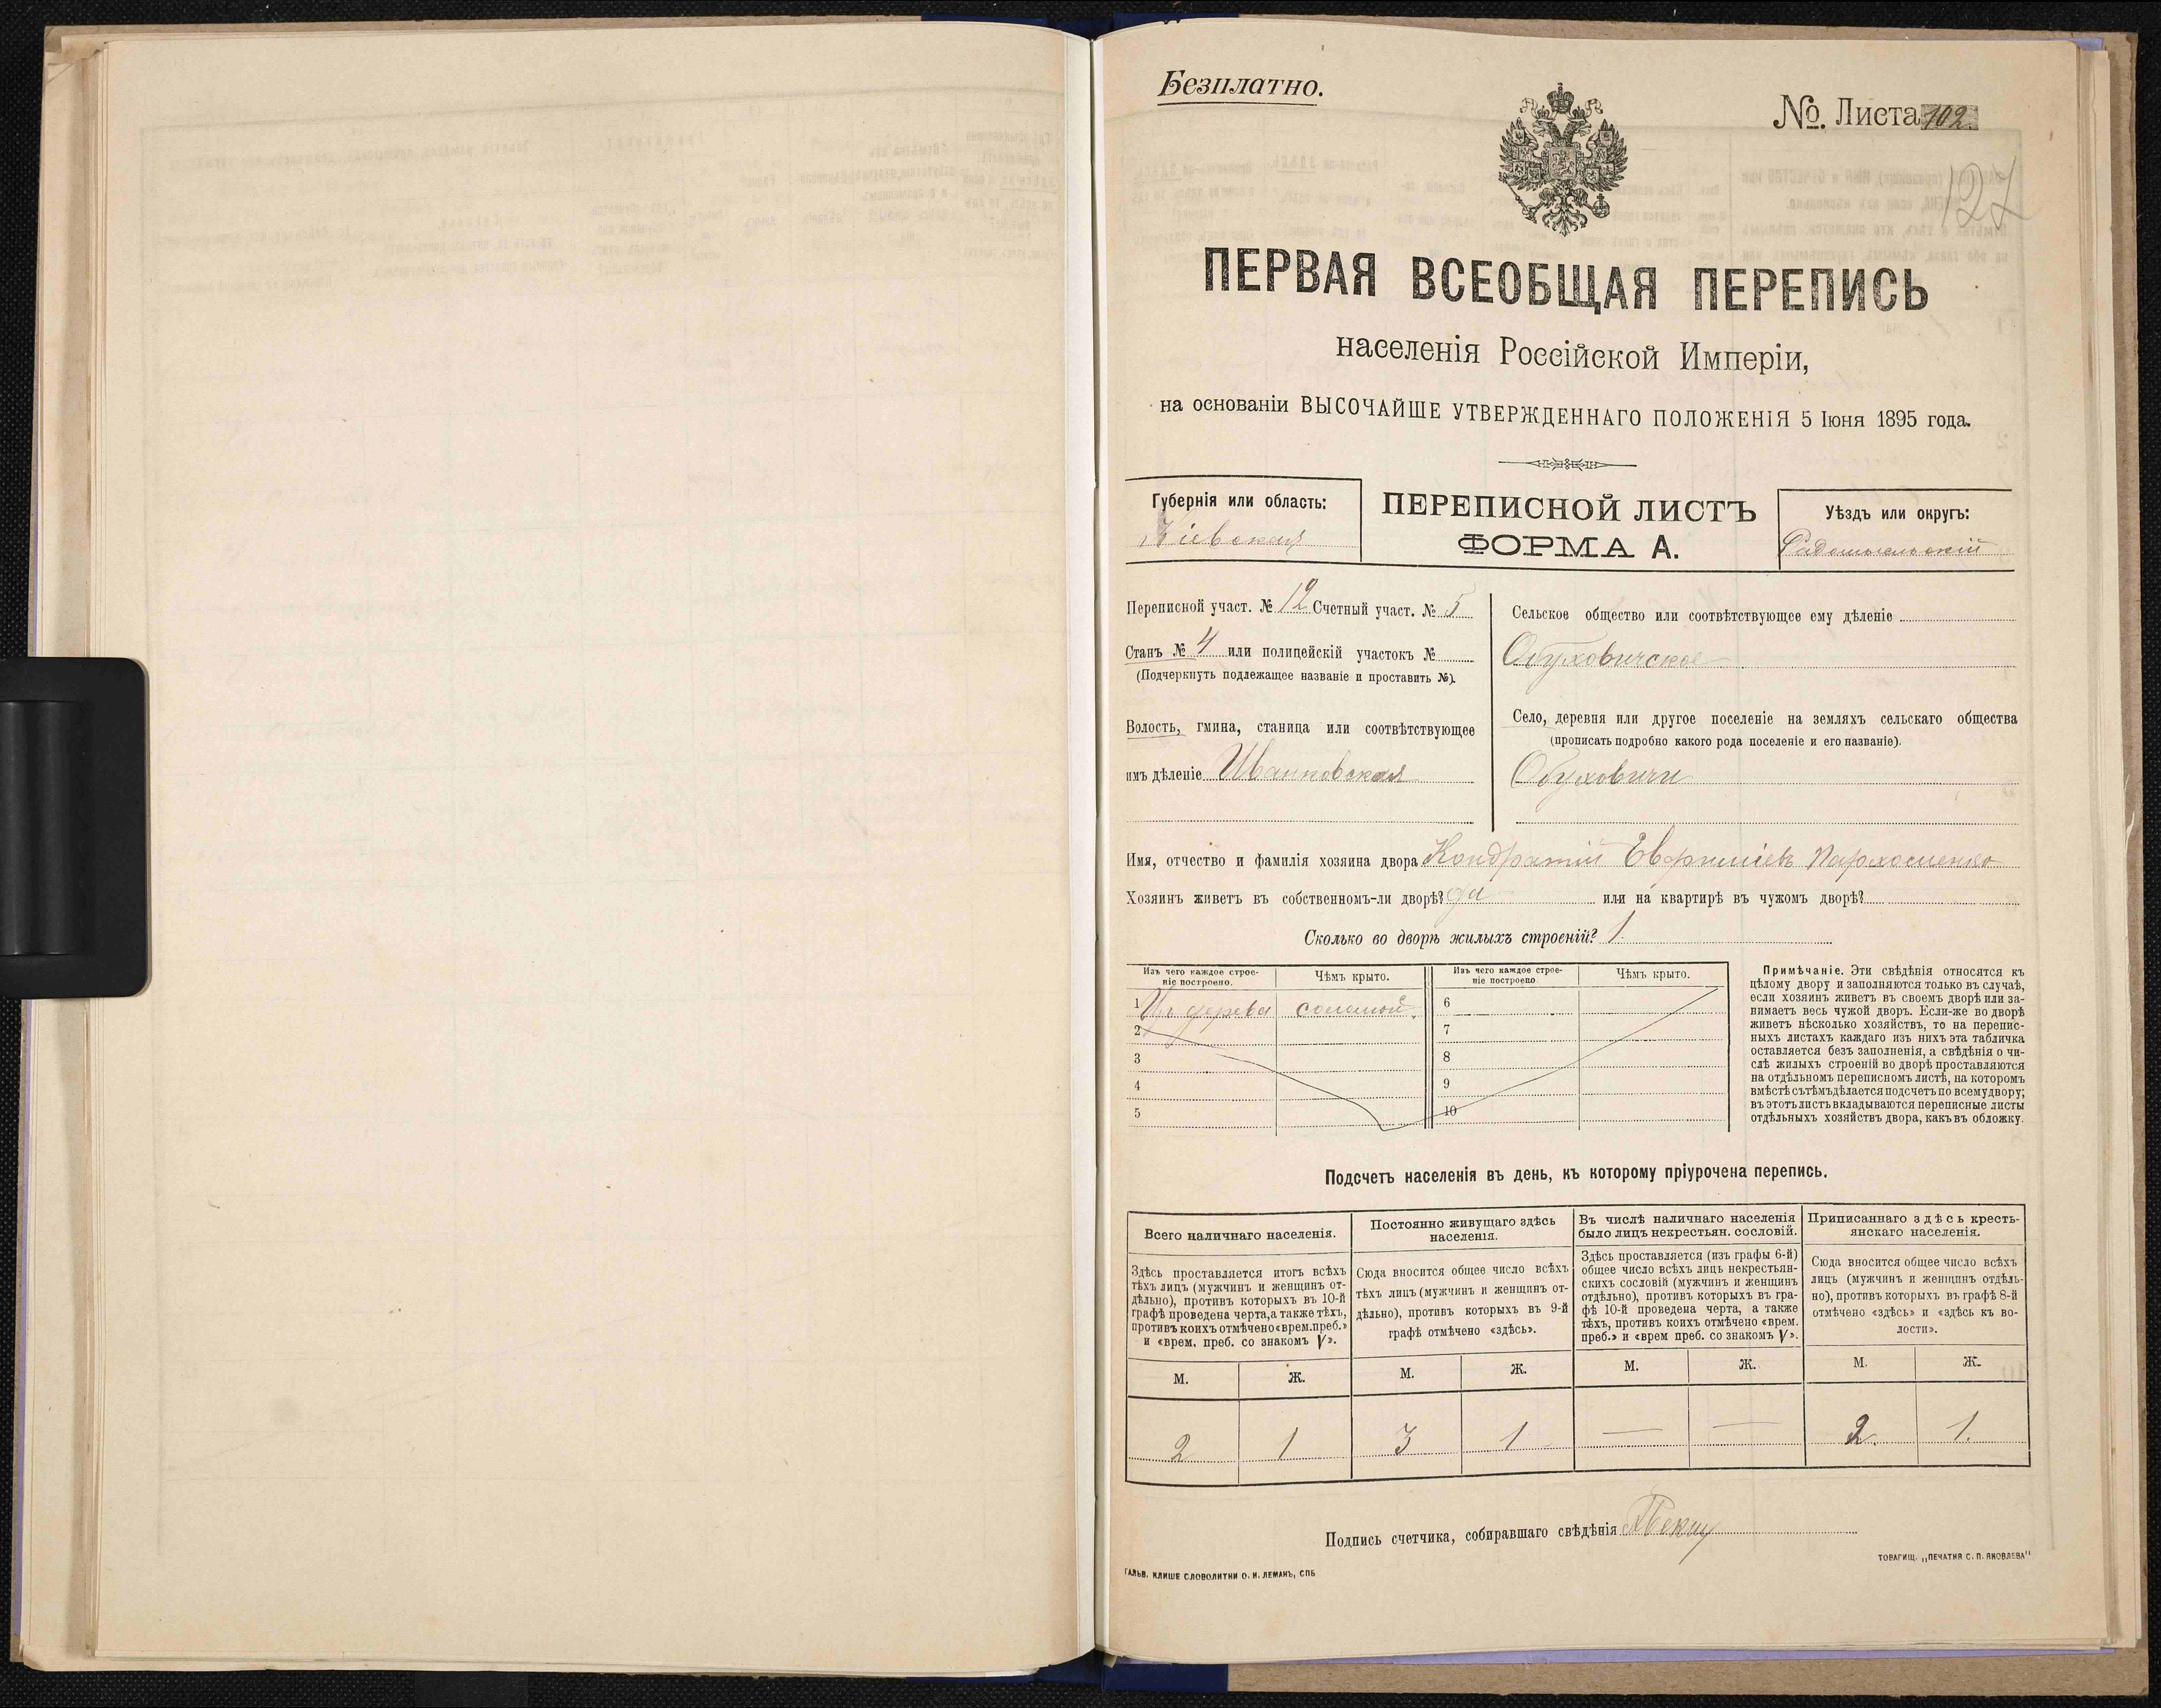 Безплатно.
№. Листа 102.
127
ПЕРВАЯ ВСЕОБЩАЯ ПЕРЕПИСЬ
населенія Россійской Имперіи,
на основаніи ВЫСОЧАЙШЕ УТВЕРЖДЕННАГО ПОЛОЖЕНІЯ 5 Іюня 1895 года.
Губернія или область:
Кіевская
ПЕРЕПИСНОЙ ЛИСТЪ
ФОРМА А.
Уѣздъ или округъ:
Радомысльскій
Переписной участ. № 12 Счетный участ. № 5
Станъ № 4 или полицейскій участокъ №
(Подчеркнуть подлежащее названіе и проставить №).
Волость, гмина, станица или соотвѣтствующее
имъ дѣленіе Иванковская
Сельское общество или соотвѣтствующее ему дѣленіе
Обуховичское
Село, деревня или другое поселеніе на земляхъ сельскаго общества
(прописать подробно какого рода поселеніе и его названіе).
Обуховичи
Имя, отчество и фамилія хозяина двора Кондратій Евфиміевъ Пархоменко
Хозяинъ живетъ въ собственномъ-ли дворѣ? да или на квартирѣ въ чужомъ дворѣ?
Сколько во дворѣ жилыхъ строеній? 1.
Изъ чего каждое строе-
ніе построено.
Чѣмъ крыто.
Изъ чего каждое строе-
ніе построено
Чѣмъ крыто.
1 Изъ дерева соломой. 6
2 7
3 8
4 9
5 10
Примѣчаніе. Эти свѣдѣнія относятся къ
цѣлому двору и заполняются только въ случаѣ,
если хозяинъ живетъ въ своемъ дворѣ или за-
нимаетъ весь чужой дворъ. Если-же во дворѣ
живетъ нѣсколько хозяйствъ, то на перепис-
ныхъ листахъ каждаго изъ нихъ эта табличка
оставляется безъ заполненія, а свѣдѣнія о чи-
слѣ жилыхъ строеній во дворѣ проставляются
на отдѣльномъ переписномъ листѣ, на которомъ
вмѣстѣ съ тѣмъ дѣлается подсчетъ по всему двору;
въ этотъ листъ вкладываются переписные листы
отдѣльныхъ хозяйствъ двора, какъ въ обложку.
Подсчетъ населенія въ день, къ которому пріурочена перепись.
Всего наличнаго населенія.
Здѣсь проставляется итогъ всѣхъ
тѣхъ лицъ (мужчинъ и женщинъ от-
дѣльно), противъ которыхъ въ 10-й
графѣ проведена черта, а также тѣхъ,
противъ коихъ отмѣчено «врем. преб.»
и «врем. преб. со знакомъ V».
Постоянно живущаго здѣсь
населенія.
Сюда вносится общее число всѣхъ
тѣхъ лицъ (мужчинъ и женщинъ от-
дѣльно), противъ которыхъ въ 9-й
графѣ отмѣчено «здѣсь».
Въ числѣ наличнаго населенія
было лицъ некрестьян. сословій.
Здѣсь проставляется (изъ графы 6-й)
общее число всѣхъ лицъ некрестьян-
скихъ сословій (мужчинъ и женщинъ
отдѣльно), противъ которыхъ въ гра-
фѣ 10-й проведена черта, а также
тѣхъ, противъ коихъ отмѣчено «врем.
преб.» и «врем преб. со знакомъ V».
Приписаннаго здѣсь кресть-
янскаго населенія.
Сюда вносится общее число всѣхъ
лицъ (мужчинъ и женщинъ отдѣль-
но), противъ которыхъ въ графѣ 8-й
отмѣчено «здѣсь» и «здѣсь къ во-
лости».
М. Ж. М. Ж. М. Ж. М. Ж.
2 1 3 1 — — 2. 1.
Подпись счетчика, собиравшаго свѣдѣнія
ГАЛЬВ. КЛИШЕ СЛОВОЛИТНИ О. И. ЛЕМАНЪ, СПБ
ТОВАРИЩ. „ПЕЧАТНЯ С. П. ЯКОВЛЕВА"